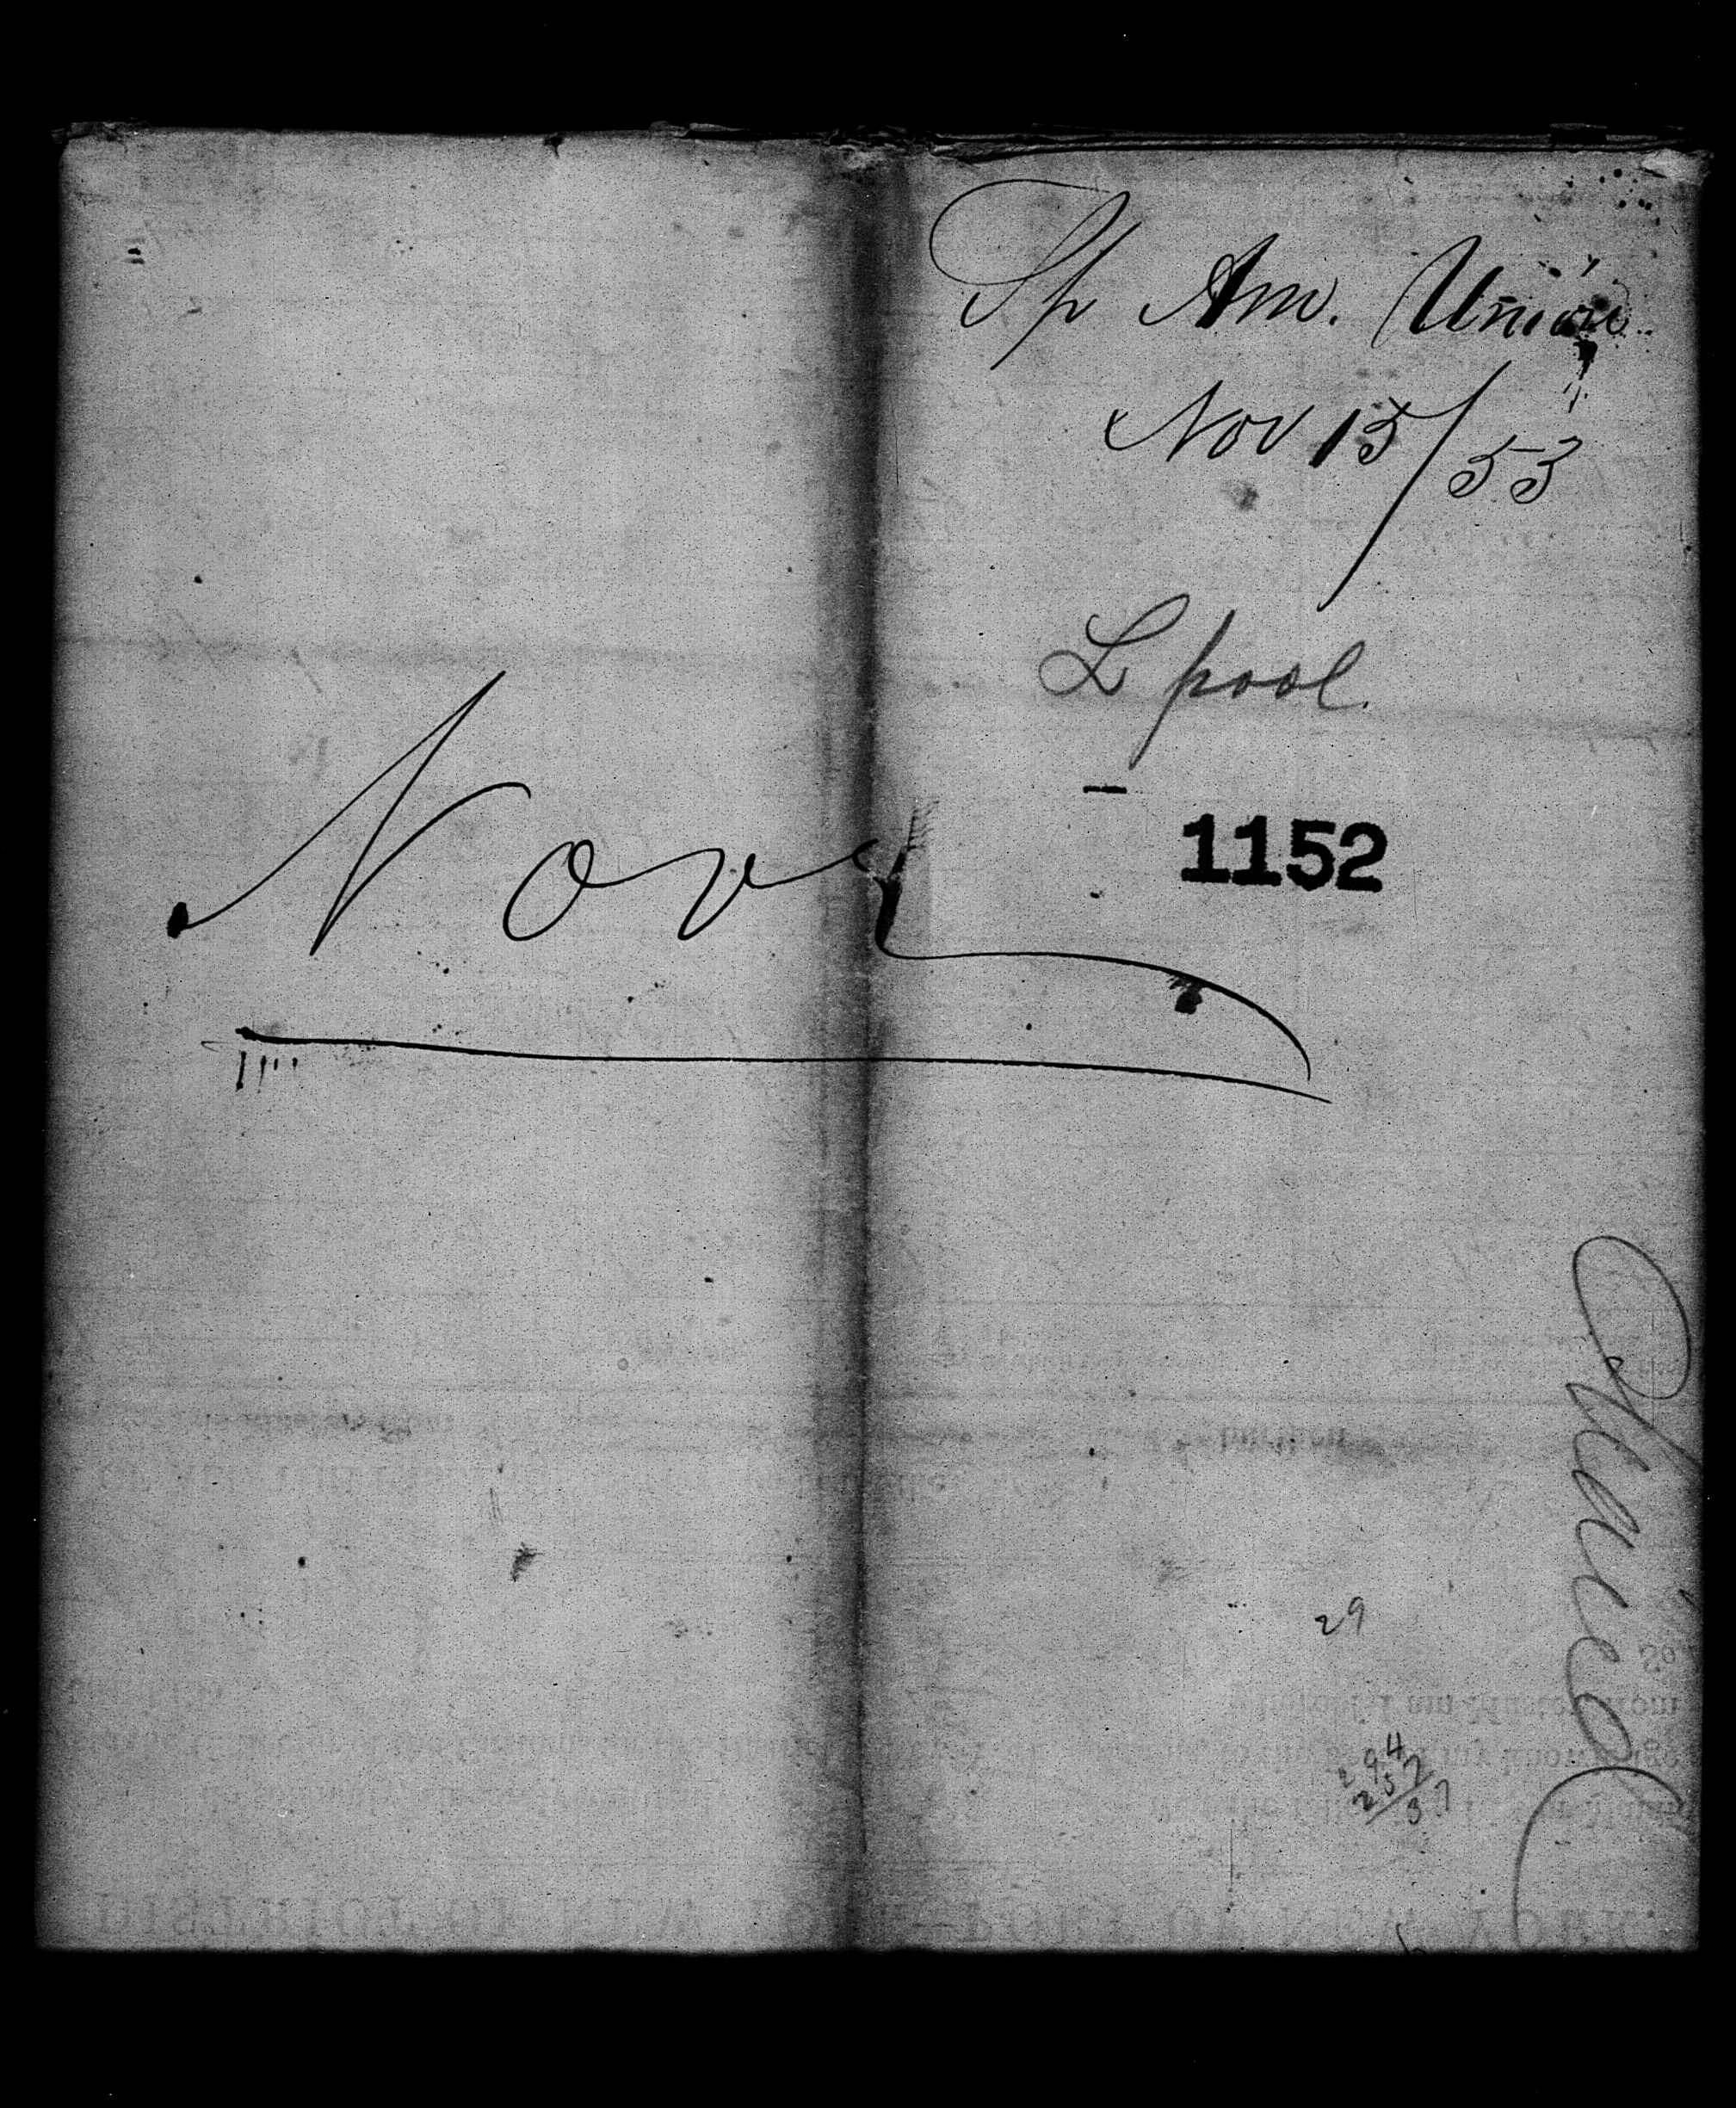 Sp Am. Union
Nov 15/53
L pool.
1152
Nov
29
294
257
37